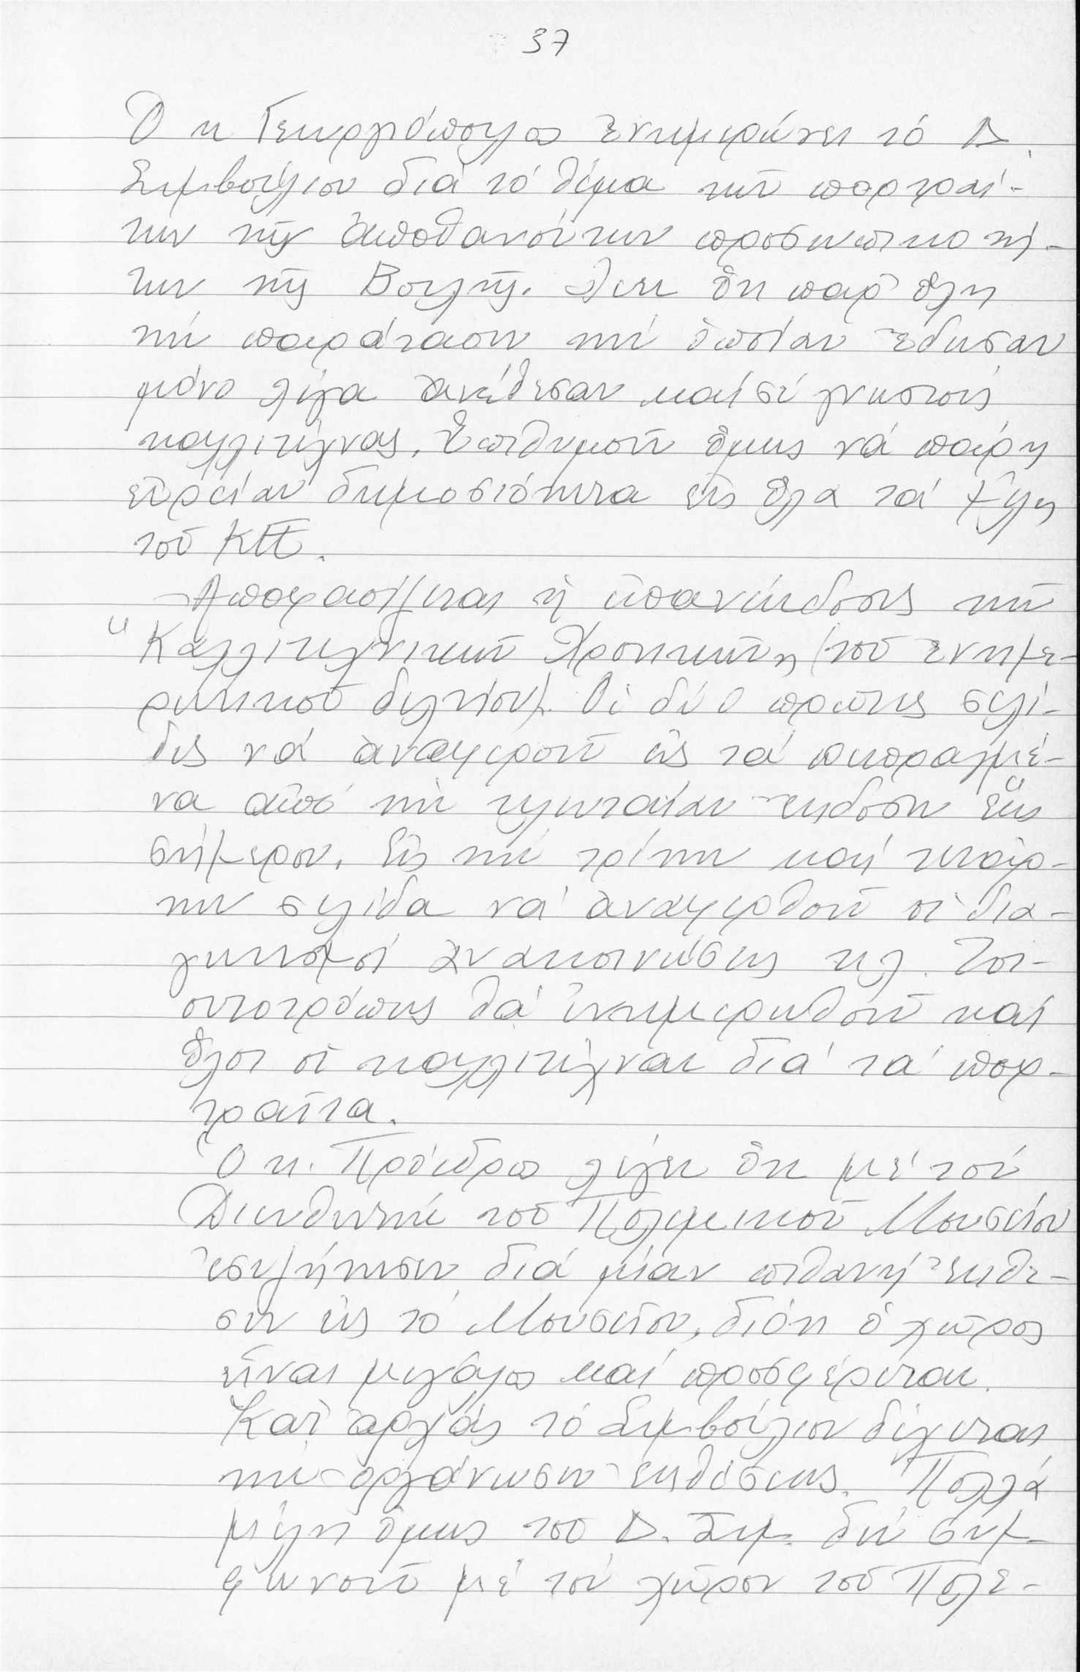 37
Ὁ κ Γεωργιόπουλος ἐνημερώνει τό Δ.
Συμβούλιον διά τό θέμα τῶν πορτραί-
των τῶν ἀποθανόντων προσωπικοτή-
των τῆς Βουλῆς. Λέει ὅτι παρ' ὅλη
τήν παράταση τήν ὁποίαν ἔδωσαν
μόνο λίγα ἀνέθεσαν καί σέ γνωστούς
καλλιτέχνας. Ἐπιθυμοῦν ὅμως νά πάρη
εὐρείαν δημοσιότητα εἰς ὅλα τά μέλη
τοῦ ΚΤΕ.
Ἀποφασίζεται ἡ ἐπανέκδοσις τῶν
"Καλλιτεχνικῶν Χρονικῶν" (τοῦ ἐνημε-
ρωτικοῦ δελτίου). Οἱ δύο πρῶτες σελί-
δες νά ἀναφερθοῦν εἰς τά πεπραγμέ-
να ἀπό τήν τελευταίαν ἔκδοση ἕως
σήμερον. Εἰς τήν τρίτην καί τετάρ-
την σελίδα νά ἀναφερθοῦν οἱ δια-
γωνισμοί ἀνακοινώσεις κλ. Τοι-
ουτοτρόπως θά ἐνημερωθοῦν καί
ὅλοι οἱ καλλιτέχναι διά τά πορ-
τραῖτα.
Ὁ κ. Πρόεδρος λέγει ὅτι μέ τόν
Διευθυντήν τοῦ Πολεμικοῦ Μουσείου
ἐσυζήτησεν διά μίαν πιθανή ἔκθε-
σιν εἰς τό Μουσεῖον, διότι ὁ χῶρος
εἶναι μεγάλος καί προσφέρεται.
Κατ' ἀρχάς τό Συμβούλιον δέχεται
τήν ὀργάνωσιν ἐκθέσεως. Πολλά
μέλη ὅμως τοῦ Δ. Συμ. δέν συμ-
φωνοῦν μέ τόν χῶρον τοῦ Πολε-